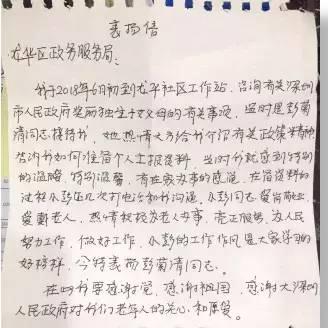 表扬信
龙华区政务服务局：
我于2018年6月初到龙华社区工作站，咨询有关深圳
市人民政府奖励独生子女父母的有关事项，当时是彭菊
清同志接待我，她热情大方给我介绍有关政策精神
告诉我如何准备个人上报资料，当时我就感到特别
的温暖，特别温馨，有在家办事的感觉，在备资料的
过程小彭还几次打电话和我沟通。小彭同志爱岗敬业，
爱戴老人，热情教授为老人办事，秉正服务，为人民
努力工作，做好工作，小彭的工作作风是大家学习的
好榜样，今特表扬彭菊清同志。
在此我要感谢党，感谢祖国，感谢大深圳
人民政府对我们老年人的关心和厚爱。